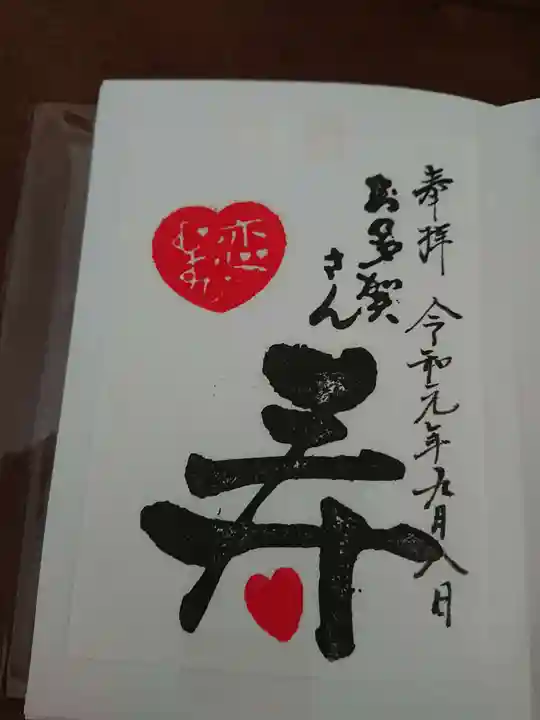 奉拝 令和元年九月八日
お多賀
さん
寿
恋
むすび